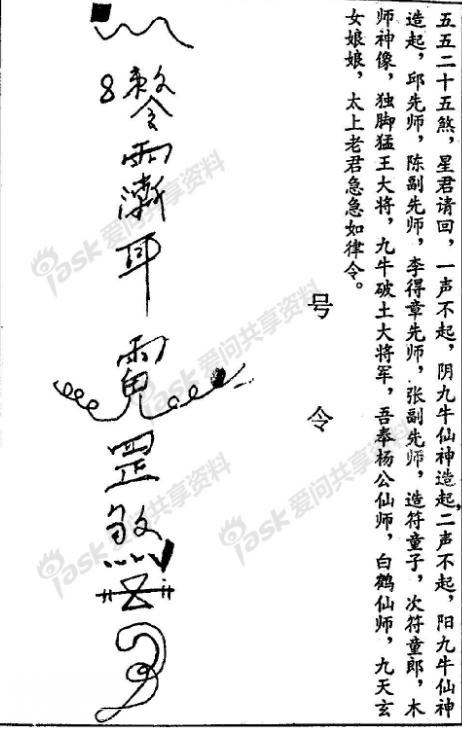 五五二十五煞，星君请回，一声不起，阴九牛仙神造起，二声不起，阳九牛仙神
造起，邱先师，陈副先师，李得章先师，张副先师，造符童子，次符童郎，木
师神像，独脚猛王大将，九牛破土大将军，吾奉杨公仙师，白鹤仙师，九天玄
女娘娘，太上老君急急如律令。
号令
雨漸耳
罡
iask爱问共享资料
iask爱问共享资料
iask爱问共享资料
iask爱问共享资料